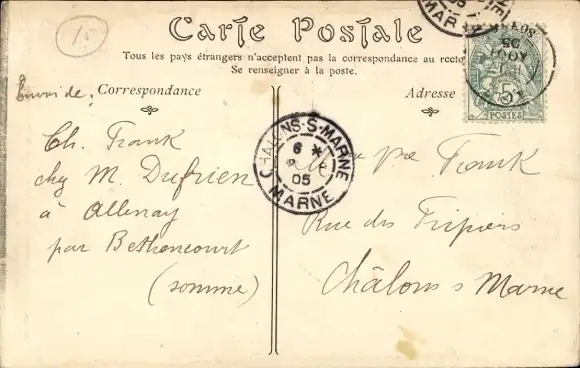 15
Carte Postale
Tous les pays étrangers n'acceptent pas la correspondance au recto
Se renseigner à la poste.
Envoi de :
Correspondance
Ch. Frank
chez M. Dufrien
à Allenay
par Bethencourt
(somme)
CHALONS-S-MARNE
6 *
05
MARNE
Adresse
Frank
Rue des Fripiers
Châlons s Marne
5c
POSTES
AOUT
05
MAR